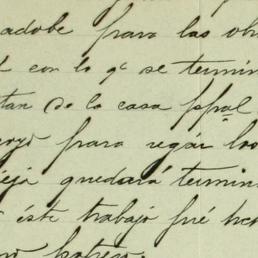 adobe para las ob
con lo qe se termin
tan de la casa Ppal
oyo para regar los
eja quedará termin
éste trabajo fué hec